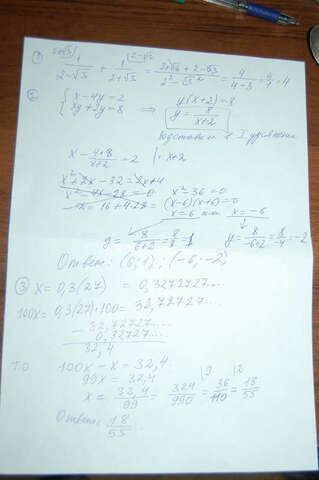 ① 2+√3) 1/(2-√3) + 1/(2+√3) (2-√3 = (2+√3 + 2-√3)/(2² - √3²) = 4/(4-3) = 4/1 = 4
② { x - 4y = 2
xy + 2y = 8 ⇒ y(x+2) = 8
y = 8/(x+2)
подставим в I уравнение
x - 4·8/(x+2) = 2 | · x+2
x² + 2x - 32 = 2x + 4
x² - 36 = 0
(x-6)(x+6) = 0
x = 6 или x = -6
y = 8/(6+2) = 8/8 = 1 y = 8/(-6+2) = 8/-4 = -2
Ответ: (6; 1) ; (-6; -2)
③ x = 0,3(27) = 0,3272727...
100x = 0,3(27)·100 = 32,72727...
- 32,72727...
0,32727...
32,4
Т.О 100x - x = 32,4
99x = 32,4
x = 32,4/99 = 324/990 |9 = 36/110 |2 = 18/55
Ответ: 18/55